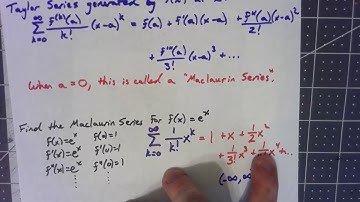 Taylor Series generated by
∞ Σ k=0 f^(k)(a)/k! (x-a)^k = f(a) + f'(a)(x-a) + f''(a)/2! (x-a)^2
+ f'''(a)/3! (x-a)^3 + ...
When a = 0, this is called a "Maclaurin Series."
Find the Maclaurin Series for f(x) = e^x
f(x) = e^x f(0) = 1
f'(x) = e^x f'(0) = 1
f''(x) = e^x f''(0) = 1
⋮ ⋮
∞ Σ k=0 1/k! x^k = 1 + x + 1/2 x^2
+ 1/3! x^3 + 1/ x^4 + ...
(-∞, ∞